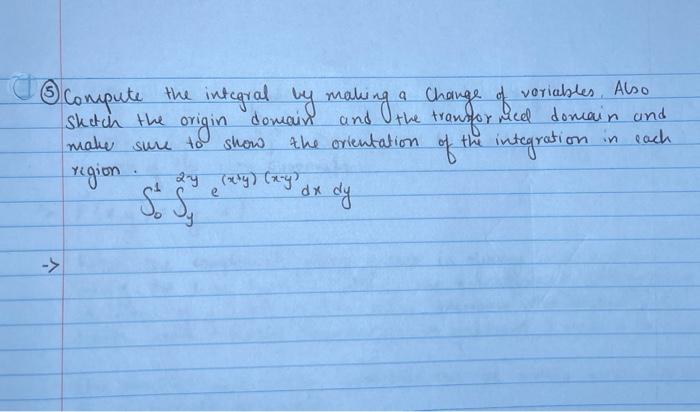 ⑤ Compute the integral by making a change of variables. Also
sketch the origin domain and the transformed domain and
make sure to show the orientation of the integration in each
region.
∫₀¹ ∫_y^{2-y} e^{(x+y)(x-y)} dx dy
->